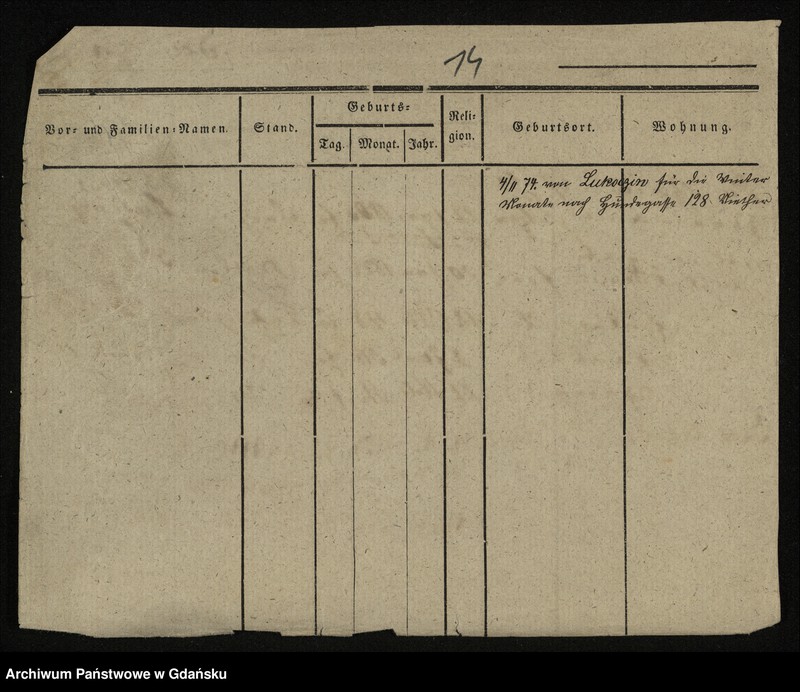 14
Vor- und Familien-Namen.
Stand.
Geburts-
Tag.
Monat.
Jahr.
Reli-
gion.
Geburtsort.
Wohnung.
4/11 74. von Lukoczin für die Winter
Monate nach Hundegasse 128
Archiwum Państwowe w Gdańsku